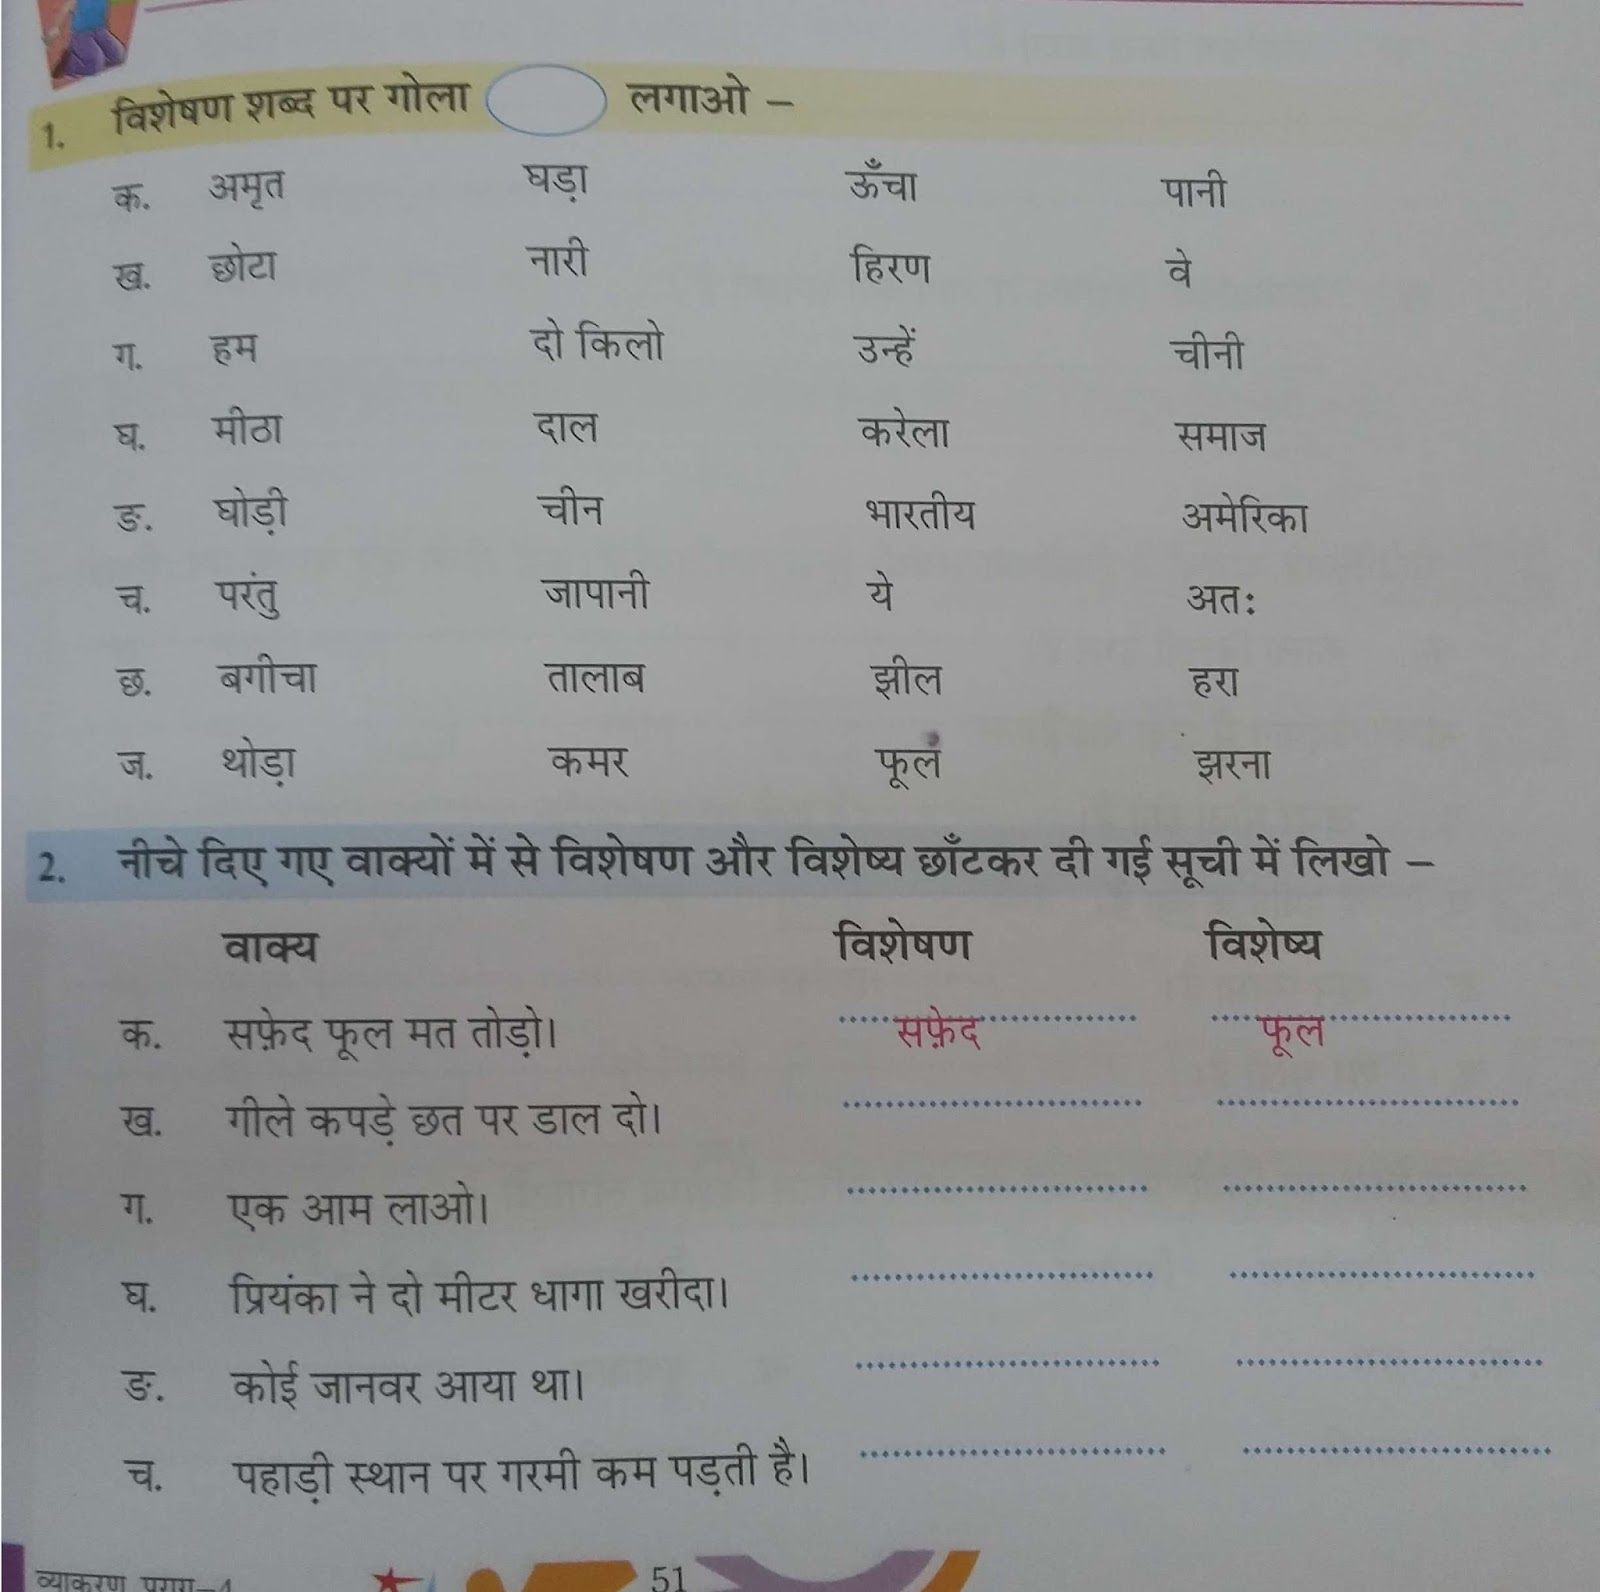 1. विशेषण शब्द पर गोला लगाओ –
क. अमृत घड़ा ऊँचा पानी
ख. छोटा नारी हिरण वे
ग. हम दो किलो उन्हें चीनी
घ. मीठा दाल करेला समाज
ङ. घोड़ी चीन भारतीय अमेरिका
च. परंतु जापानी ये अतः
छ. बगीचा तालाब झील हरा
ज. थोड़ा कमर फूल झरना
2. नीचे दिए गए वाक्यों में से विशेषण और विशेष्य छाँटकर दी गई सूची में लिखो –
वाक्य विशेषण विशेष्य
क. सफ़ेद फूल मत तोड़ो। सफ़ेद फूल
ख. गीले कपड़े छत पर डाल दो।
ग. एक आम लाओ।
घ. प्रियंका ने दो मीटर धागा खरीदा।
ङ. कोई जानवर आया था।
च. पहाड़ी स्थान पर गरमी कम पड़ती है।
व्याकरण 51